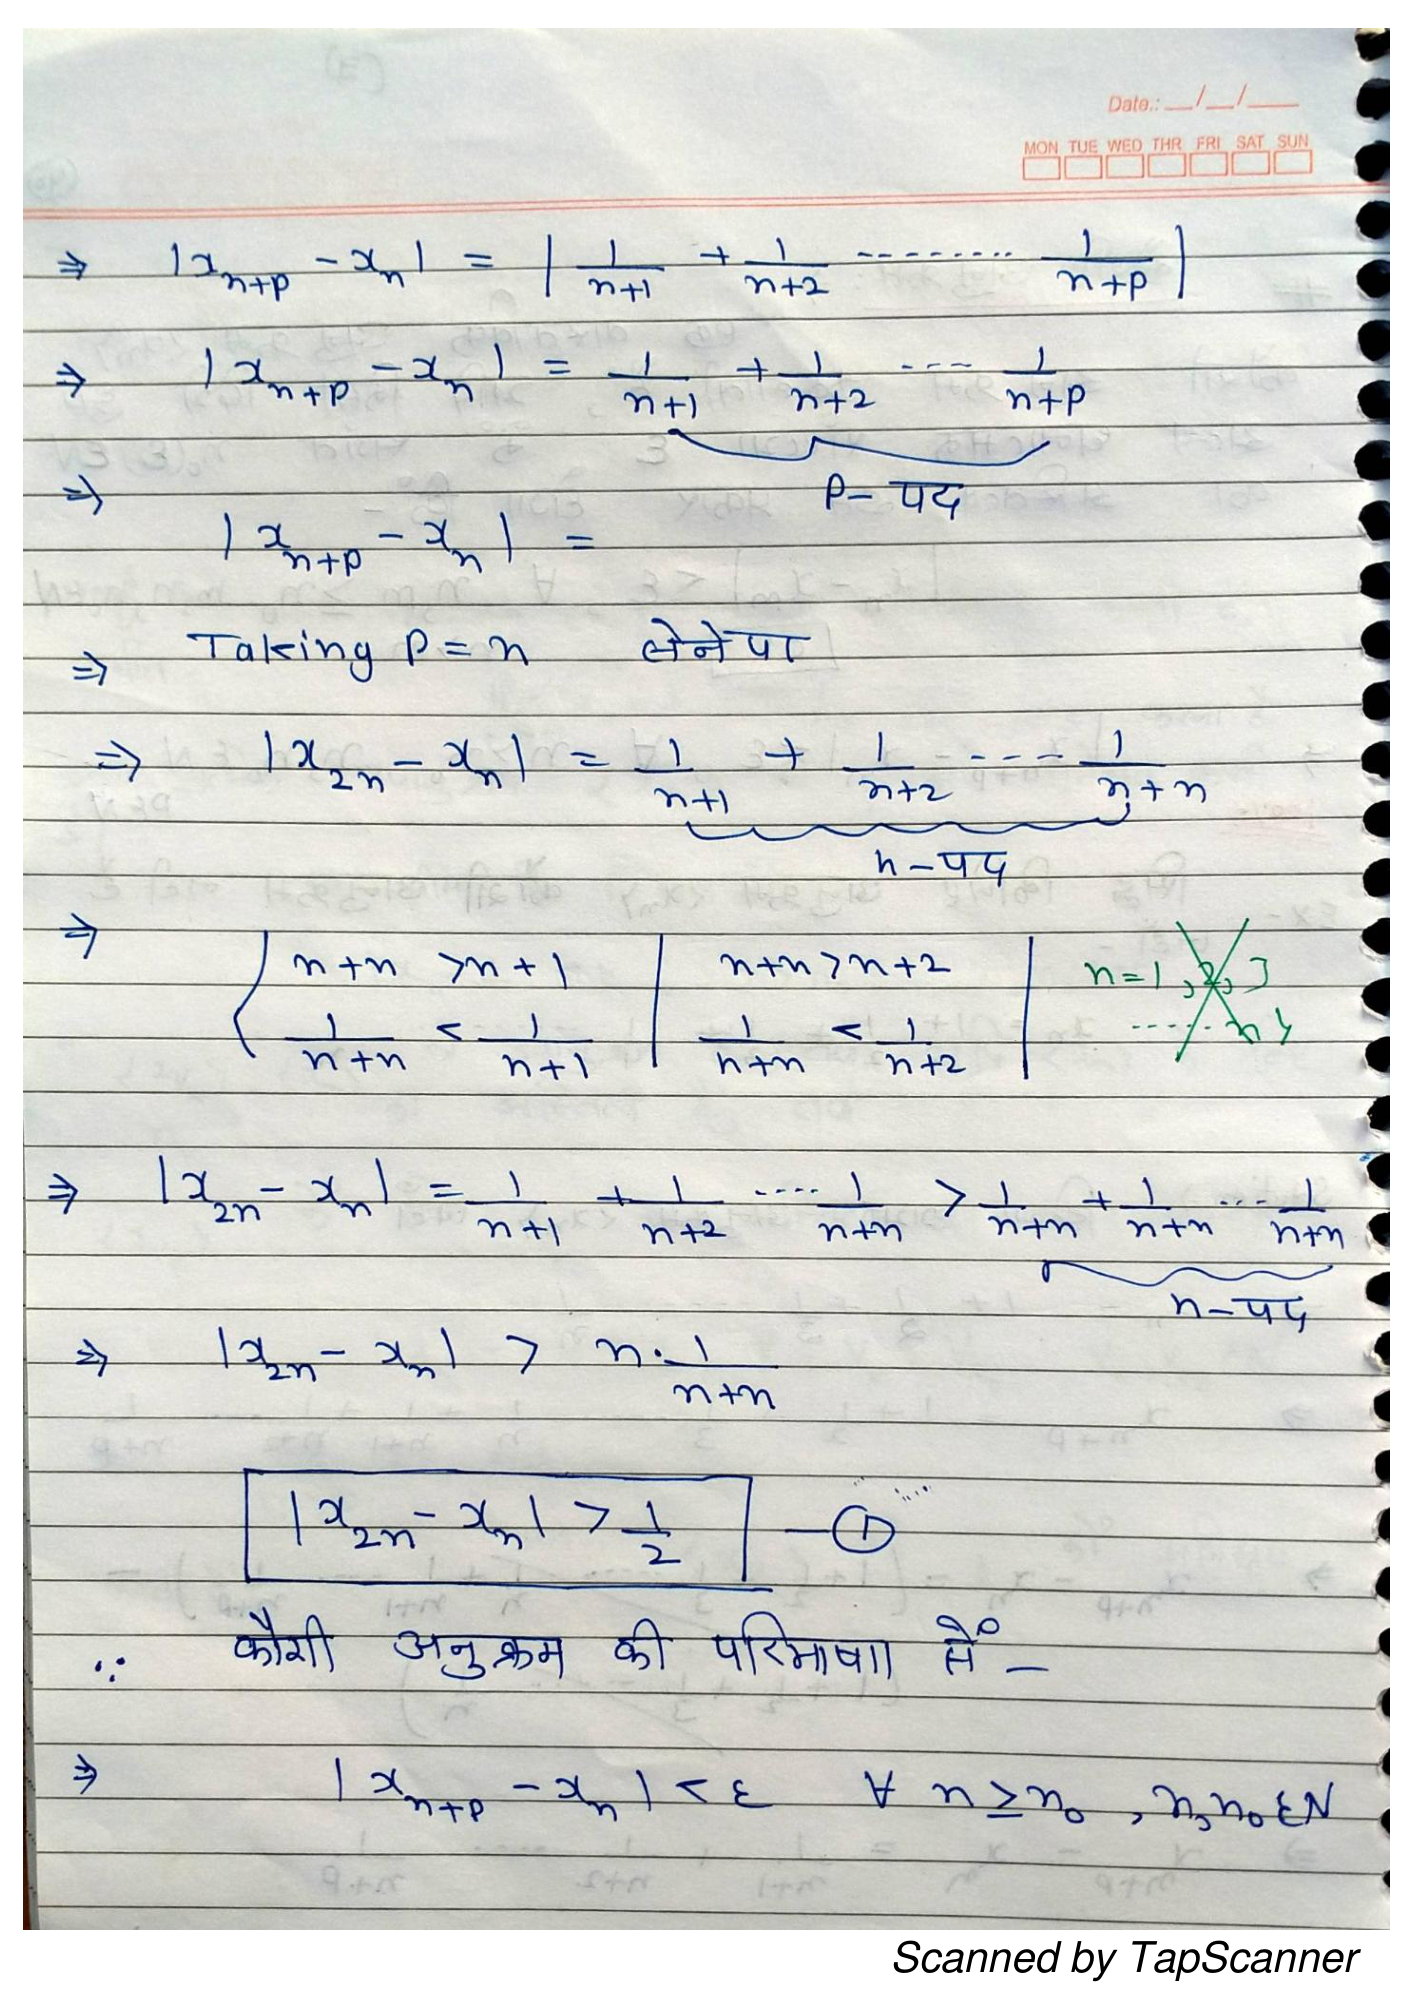 Date.: __/__/___
MON TUE WED THR FRI SAT SUN
⇒ |x_{n+p} - x_n| = | 1/(n+1) + 1/(n+2) -------- 1/(n+p) |
⇒ |x_{n+p} - x_n| = 1/(n+1) + 1/(n+2) ---- 1/(n+p)
p - पद
⇒ |x_{n+p} - x_n| =
⇒ Taking P = n लेने पर
⇒ |x_{2n} - x_n| = 1/(n+1) + 1/(n+2) ---- 1/(n+n)
n - पद
⇒ ( n+n > n+1 | n+n > n+2 | n=1,2,3
1/(n+n) < 1/(n+1) | 1/(n+n) < 1/(n+2) | ...... n}
⇒ |x_{2n} - x_n| = 1/(n+1) + 1/(n+2) .... 1/(n+n) > 1/(n+n) + 1/(n+n) ... 1/(n+n)
n - पद
⇒ |x_{2n} - x_n| > n · 1/(n+n)
|x_{2n} - x_n| > 1/2 — ①
∵ कौशी अनुक्रम की परिभाषा सें -
⇒ |x_{n+p} - x_n| < ε ∀ n ≥ n_0 , n, n_0 ∈ N
Scanned by TapScanner